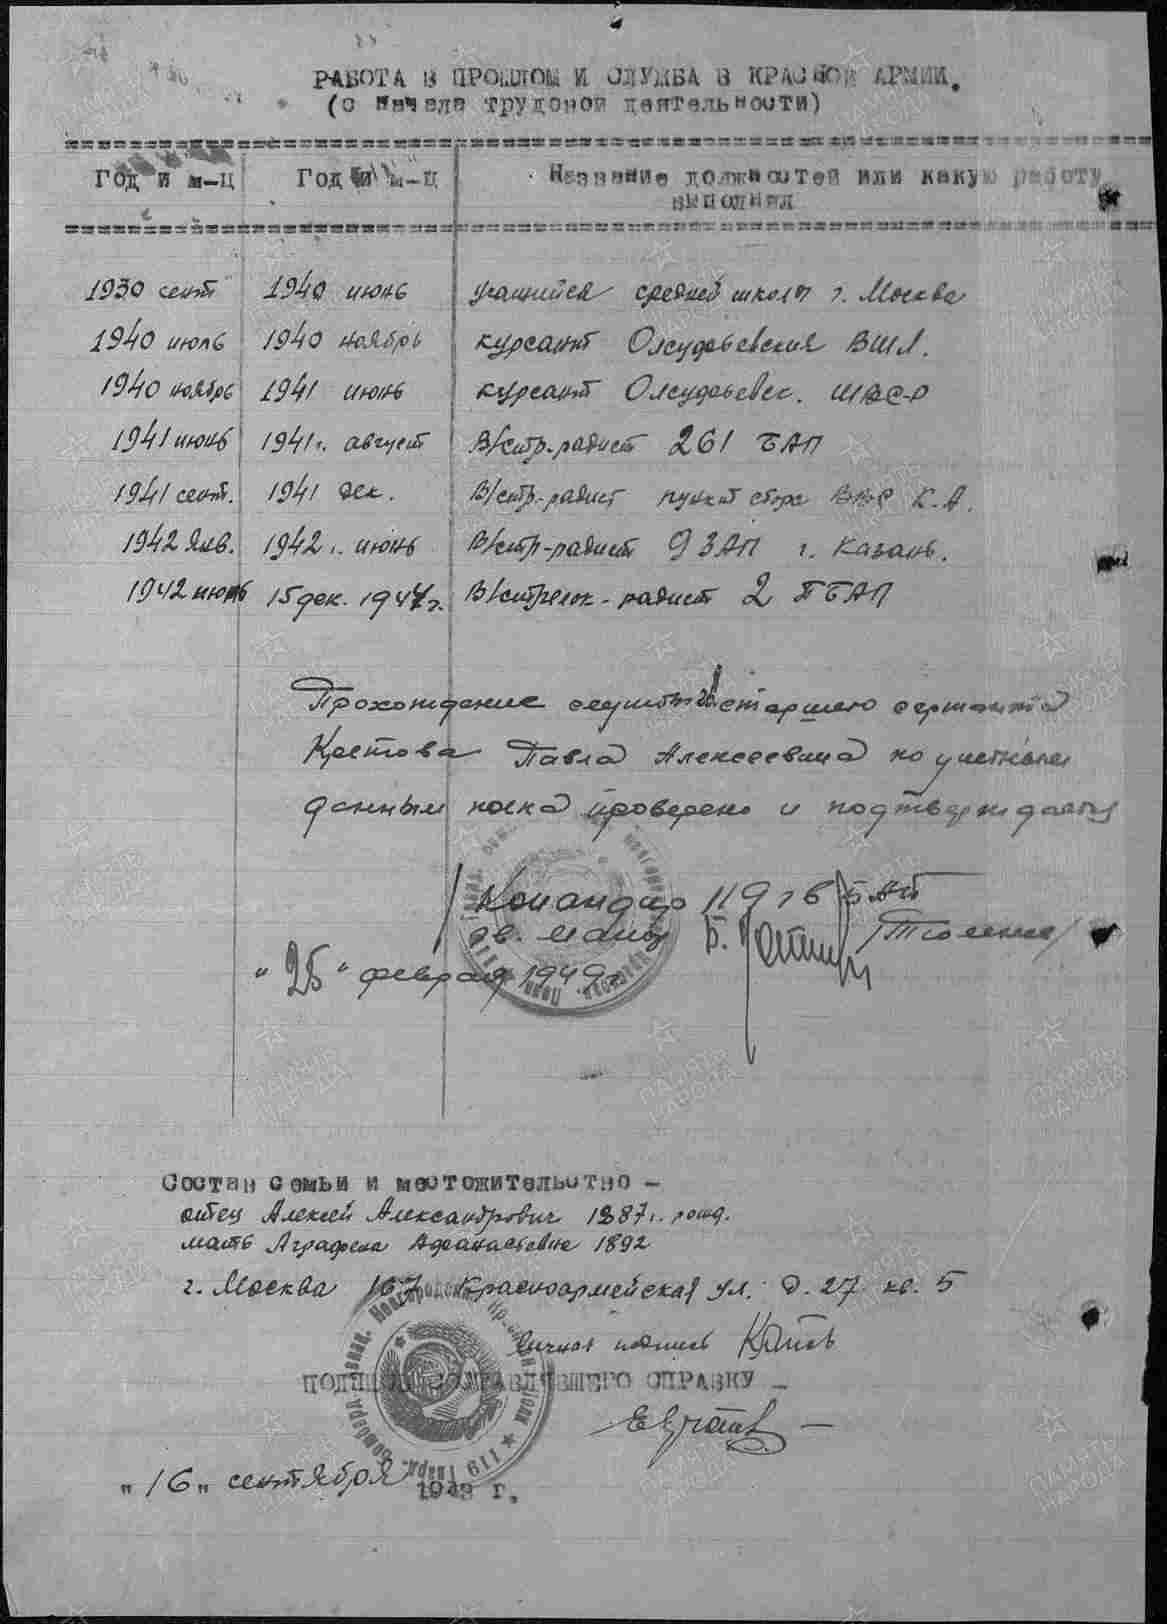 РАБОТА В ПРОШЛОМ И СЛУЖБА В КРАСНОЙ АРМИИ.
(с начала трудовой деятельности)
Год и м-ц Год и м-ц Название должностей или какую работу
выполнял
1930 сент 1940 июнь учащийся средней школы г. Москва
1940 июль 1940 ноябрь курсант Олсуфьевская ВШЛ.
1940 ноябрь 1941 июнь курсант Олсуфьевск.
1941 июнь 1941г. август В/стр-радист 261 БАП
1941 сент. 1941 дек. В/стр-радист пункт сбора ВВС К.А.
1942 янв. 1942 г. июнь В/стр-радист 9 ЗАП г. Казань.
1942 июнь 15 дек. 1944г. В/стрелок-радист 2 ПБАП
Прохождение службы старшего сержанта
Павла Алексеевича по учетным
данным полка проверено и подтверждаю
Командир 119 гв БАП
гв. майор
"25" февраля 1949 г.
Состав семьи и местожительство -
отец Алексей Александрович 1887г. рожд.
мать Аграфена Афанасьевна 1892
г. Москва 167 Красноармейская ул. д. 27 кв. 5
Личная подпись
ПОДПИСЬ СОСТАВЛЯВШЕГО СПРАВКУ -
"16" сентября 194 г.
ПАМЯТЬ НАРОДА